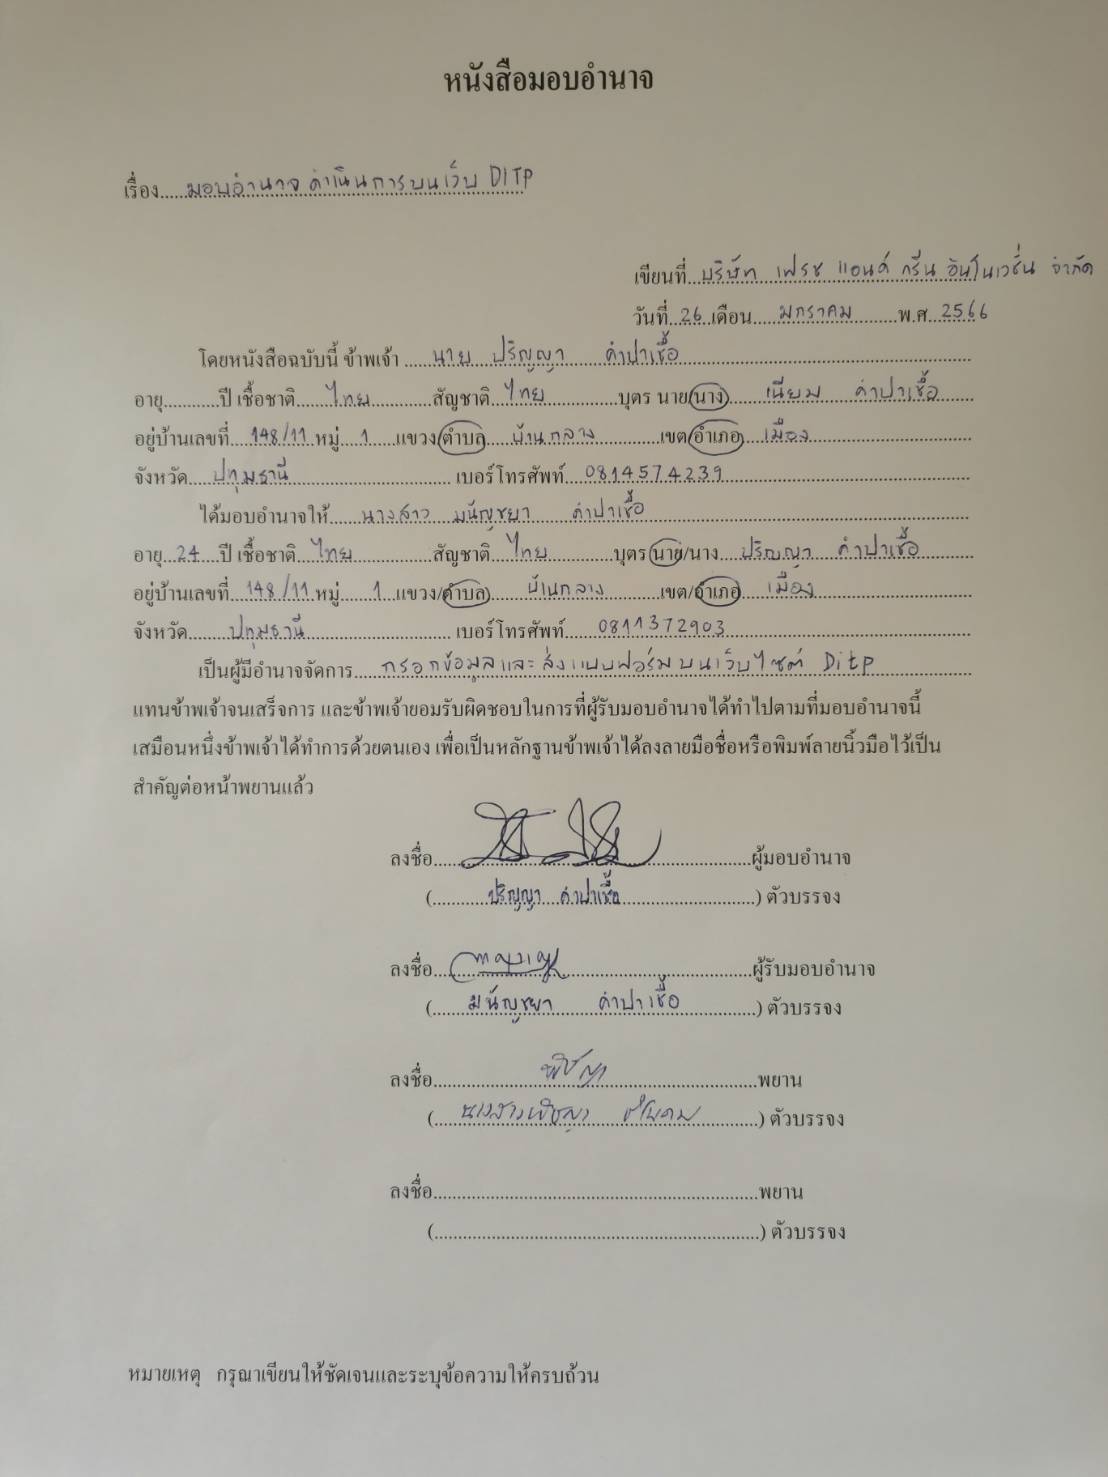 หนังสือมอบอำนาจ
เรื่อง.....มอบอำนาจ ดำเนินการบนเว็บ DITP
เขียนที่...บริษัท เฟรช แอนด์ กรีน อินโนเวชั่น จำกัด
วันที่..26..เดือน.....มกราคม........พ.ศ..2566
โดยหนังสือฉบับนี้ ข้าพเจ้า.....นาย ปริญญา คำปาเชื้อ
อายุ...........ปี เชื้อชาติ.....ไทย............สัญชาติ...ไทย..............บุตร นาย/นาง.......เนียม คำปาเชื้อ
อยู่บ้านเลขที่...148/11 หมู่....1....แขวง/ตำบล.....บ้านกลาง.............เขต/อำเภอ....เมือง
จังหวัด.....ปทุมธานี...............................เบอร์โทรศัพท์....0814574239
ได้มอบอำนาจให้......นางสาว มนัญชยา คำปาเชื้อ
อายุ..24...ปี เชื้อชาติ...ไทย...............สัญชาติ...ไทย.............บุตร นาย/นาง....ปริญญา คำปาเชื้อ
อยู่บ้านเลขที่...148/11 หมู่......1...แขวง/ตำบล.......บ้านกลาง...........เขต/อำเภอ.....เมือง
จังหวัด........ปทุมธานี............................เบอร์โทรศัพท์......0811372903
เป็นผู้มีอำนาจจัดการ.....กรอกข้อมูลและ ส่งแบบฟอร์มบนเว็บไซต์ Ditp
แทนข้าพเจ้าจนเสร็จการ และข้าพเจ้ายอมรับผิดชอบในการที่ผู้รับมอบอำนาจได้ทำไปตามที่มอบอำนาจนี้
เสมือนหนึ่งข้าพเจ้าได้ทำการด้วยตนเอง เพื่อเป็นหลักฐานข้าพเจ้าได้ลงลายมือชื่อหรือพิมพ์ลายนิ้วมือไว้เป็น
สำคัญต่อหน้าพยานแล้ว
ลงชื่อ..................................................ผู้มอบอำนาจ
(..........ปริญญา คำปาเชื้อ.........................) ตัวบรรจง
ลงชื่อ..................................................ผู้รับมอบอำนาจ
(......มนัญชยา คำปาเชื้อ...............) ตัวบรรจง
ลงชื่อ..................................................พยาน
(.....นางสาว..................................) ตัวบรรจง
ลงชื่อ..................................................พยาน
(..................................................) ตัวบรรจง
หมายเหตุ กรุณาเขียนให้ชัดเจนและระบุข้อความให้ครบถ้วน